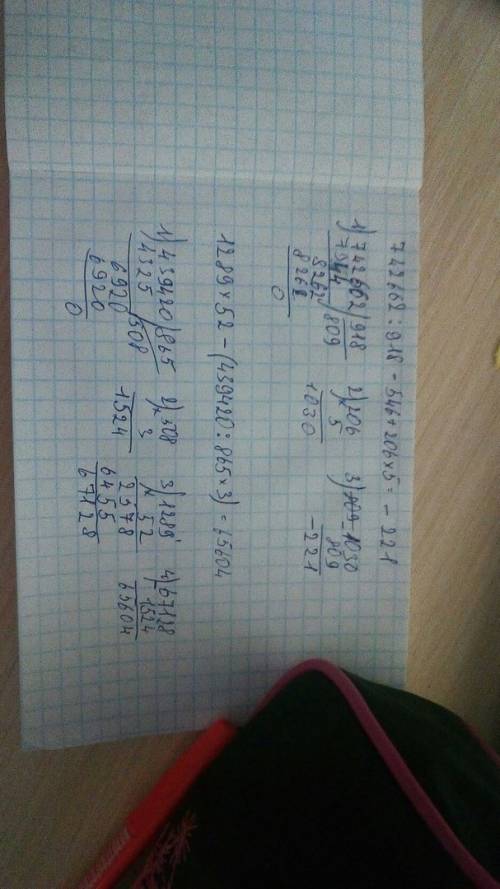 742662 : 918 - 546 + 206 x 5 = - 221
1) 742662 | 918
7344 | 809
8262
8262
0
2) 206
x 5
1030
3) 1030
809
- 221
1289 x 52 - (439420 : 865 x 3) = 65604
1) 439420 | 865
4325 | 508
6920
6920
0
2) 508
x 3
1524
3) 1289
x 52
2578
6455
67128
4) 67128
1524
65604